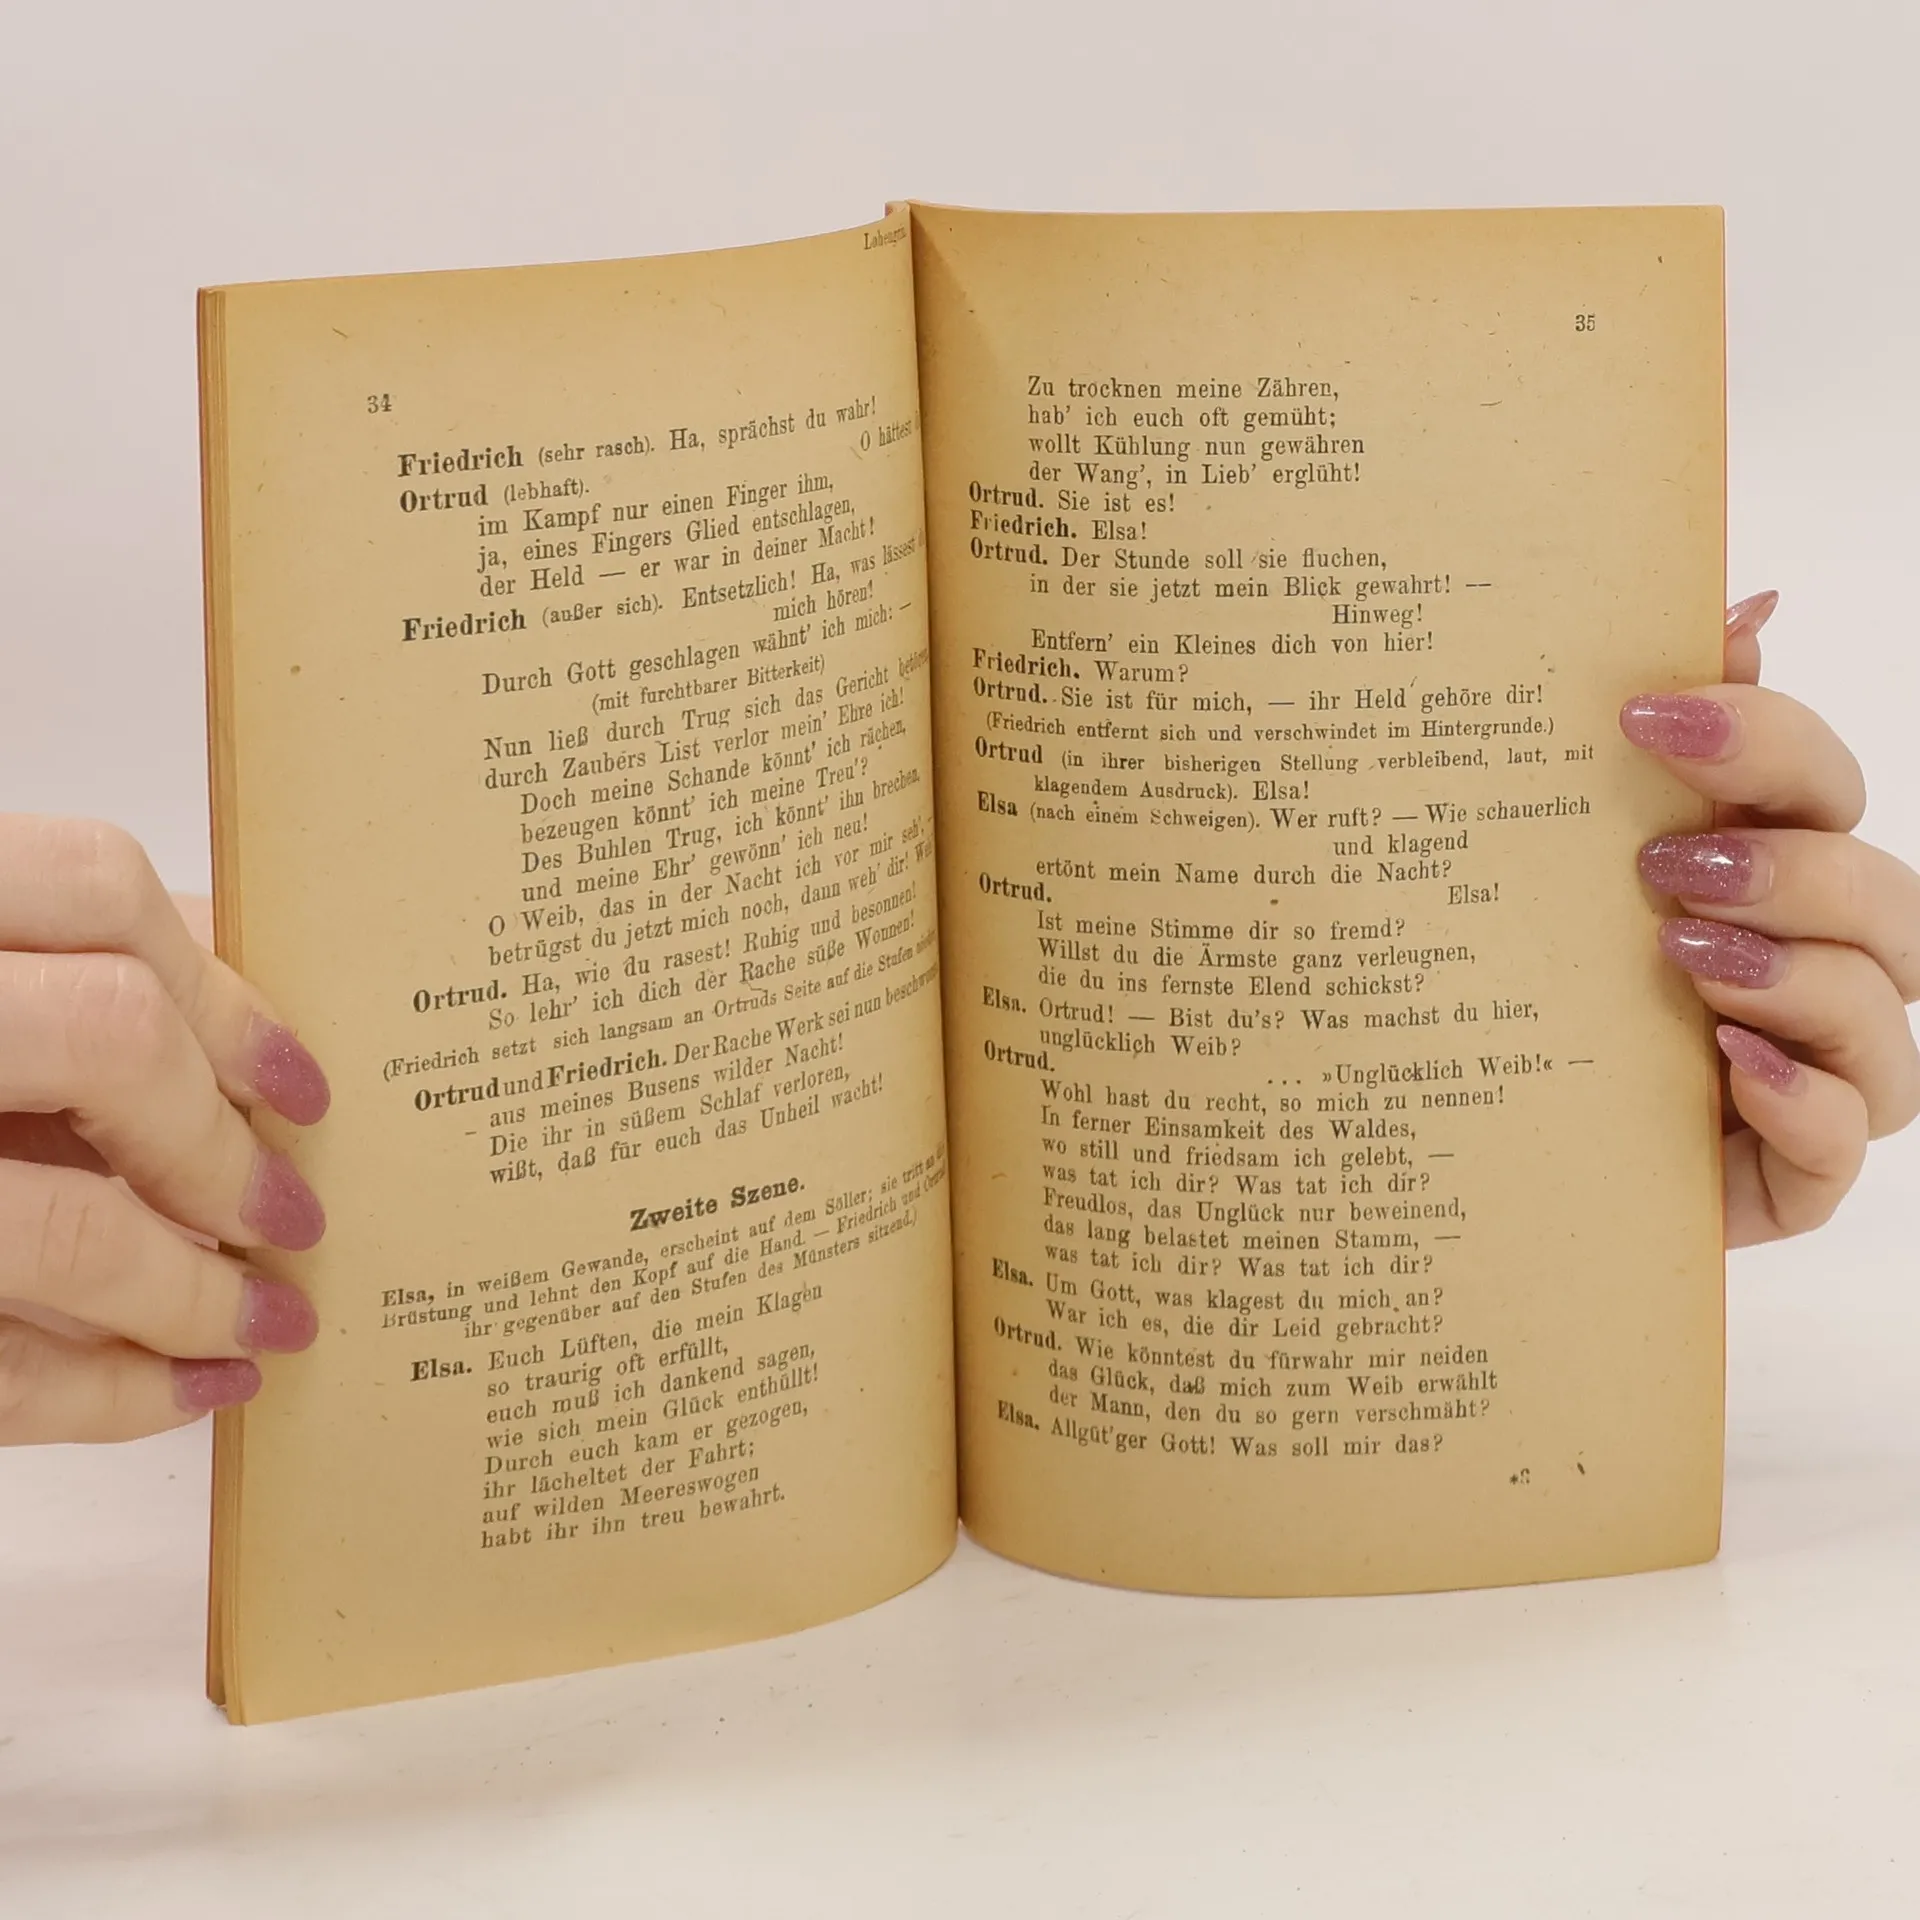 34
Friedrich (sehr rasch). Ha, sprächst du wahr!
Ortrud (lebhaft). O hättest
im Kampf nur einen Finger ihm,
ja, eines Fingers Glied entschlagen,
der Held — er war in deiner Macht!
Friedrich (außer sich). Entsetzlich! Ha, was lässest
mich hören!
Durch Gott geschlagen wähnt' ich mich: —
(mit furchtbarer Bitterkeit)
Nun ließ durch Trug sich das Gericht betören,
durch Zaubers List verlor mein' Ehre ich!
Doch meine Schande könnt' ich rächen,
bezeugen könnt' ich meine Treu'?
Des Buhlen Trug, ich könnt' ihn brechen,
und meine Ehr' gewönn' ich neu!
O Weib, das in der Nacht ich vor mir seh', —
betrügst du jetzt mich noch, dann weh' dir!
Ortrud. Ha, wie du rasest! Ruhig und besonnen!
So lehr' ich dich der Rache süße Wonnen!
(Friedrich setzt sich langsam an Ortruds Seite auf die Stufen
Ortrud und Friedrich. Der Rache Werk sei nun beschworen
aus meines Busens wilder Nacht!
Die ihr in süßem Schlaf verloren,
wißt, daß für euch das Unheil wacht!
Zweite Szene.
Elsa, in weißem Gewande, erscheint auf dem Söller; sie tritt an
Brüstung und lehnt den Kopf auf die Hand. — Friedrich und
ihr gegenüber auf den Stufen des Münsters sitzend.)
Elsa. Euch Lüften, die mein Klagen
so traurig oft erfüllt,
euch muß ich dankend sagen,
wie sich mein Glück enthüllt!
Durch euch kam er gezogen,
ihr lächeltet der Fahrt;
auf wilden Meereswogen
habt ihr ihn treu bewahrt.
Lohengrin.
35
Zu trocknen meine Zähren,
hab' ich euch oft gemüht;
wollt Kühlung nun gewähren
der Wang', in Lieb' erglüht!
Ortrud. Sie ist es!
Friedrich. Elsa!
Ortrud. Der Stunde soll sie fluchen,
in der sie jetzt mein Blick gewahrt! —
Hinweg!
Entfern' ein Kleines dich von hier!
Friedrich. Warum?
Ortrud. Sie ist für mich, — ihr Held gehöre dir!
(Friedrich entfernt sich und verschwindet im Hintergrunde.)
Ortrud (in ihrer bisherigen Stellung verbleibend, laut, mit
klagendem Ausdruck). Elsa!
Elsa (nach einem Schweigen). Wer ruft? — Wie schauerlich
und klagend
ertönt mein Name durch die Nacht?
Ortrud. Elsa!
Ist meine Stimme dir so fremd?
Willst du die Ärmste ganz verleugnen,
die du ins fernste Elend schickst?
Elsa. Ortrud! — Bist du's? Was machst du hier,
unglücklich Weib?
Ortrud. ... »Unglücklich Weib!« —
Wohl hast du recht, so mich zu nennen!
In ferner Einsamkeit des Waldes,
wo still und friedsam ich gelebt, —
was tat ich dir? Was tat ich dir?
Freudlos, das Unglück nur beweinend,
das lang belastet meinen Stamm, —
was tat ich dir? Was tat ich dir?
Elsa. Um Gott, was klagest du mich an?
War ich es, die dir Leid gebracht?
Ortrud. Wie könntest du fürwahr mir neiden
das Glück, daß mich zum Weib erwählt
der Mann, den du so gern verschmäht?
Elsa. Allgüt'ger Gott! Was soll mir das?